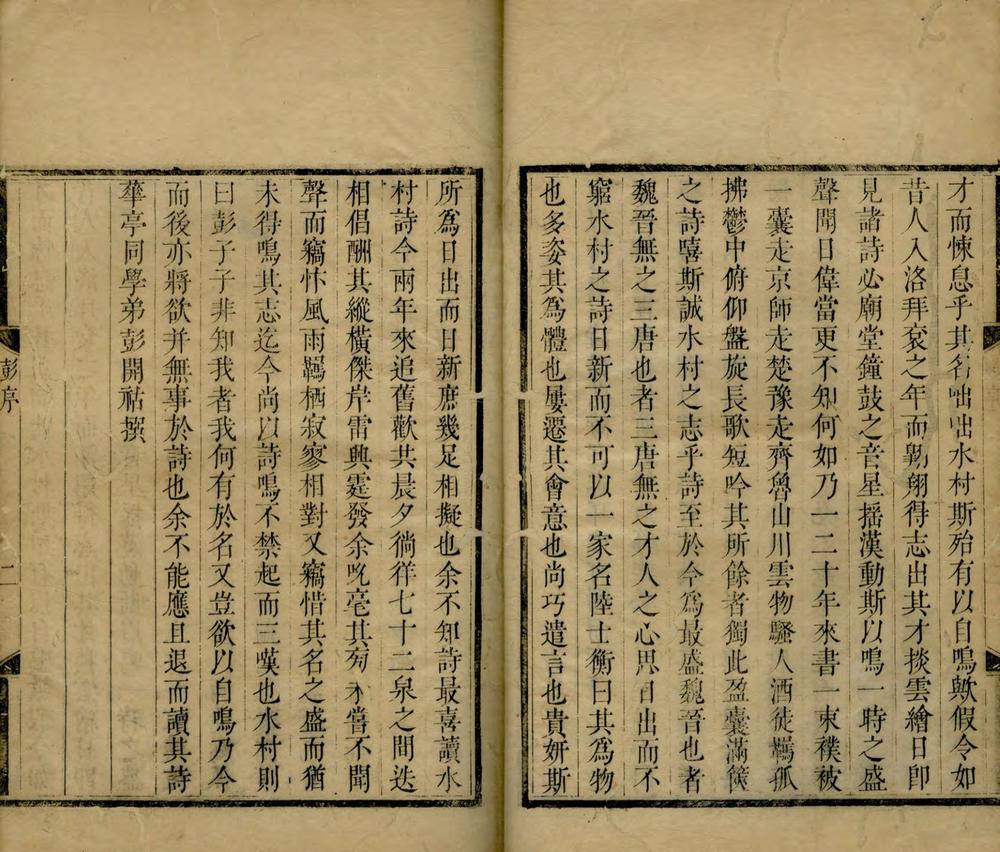 才而悚息乎其名咄咄水村斯殆有以自鳴歟假令如
昔人入洛拜袞之年而翱翔得志出其才掞雲繪日卽
見諸詩必廟堂鐘鼓之音星摇漢動斯以鳴一時之盛
聲聞日偉當更不知何如乃一二十年來書一束襆被
一囊走京師走楚豫走齊魯山川雲物騷人酒徒羈孤
拂鬱中俯仰盤旋長歌短吟其所餘者獨此盈囊滿篋
之詩嘻斯誠水村之志乎詩至於今爲最盛魏晉也者
魏晉無之三唐也者三唐無之才人之心思日出而不
窮水村之詩日新而不可以一家名陸士衡曰其爲物
也多姿其爲體也屢遷其會意也尚巧遣言也貴妍斯
所爲日出而日新庶幾足相擬也余不知詩最喜讀水
村詩今兩年來追舊歡共晨夕徜徉七十二泉之間迭
相倡酬其縱橫傑岸雷興霆發余吮毫其旁未嘗不聞
聲而竊怍風雨羈栖寂寥相對又竊惜其名之盛而猶
未得鳴其志迄今尚以詩鳴不禁起而三嘆也水村則
曰彭子子非知我者我何有於名又豈欲以自鳴乃今
而後亦將欲并無事於詩也余不能應且退而讀其詩
華亭同學弟彭開祐撰
彭序
二